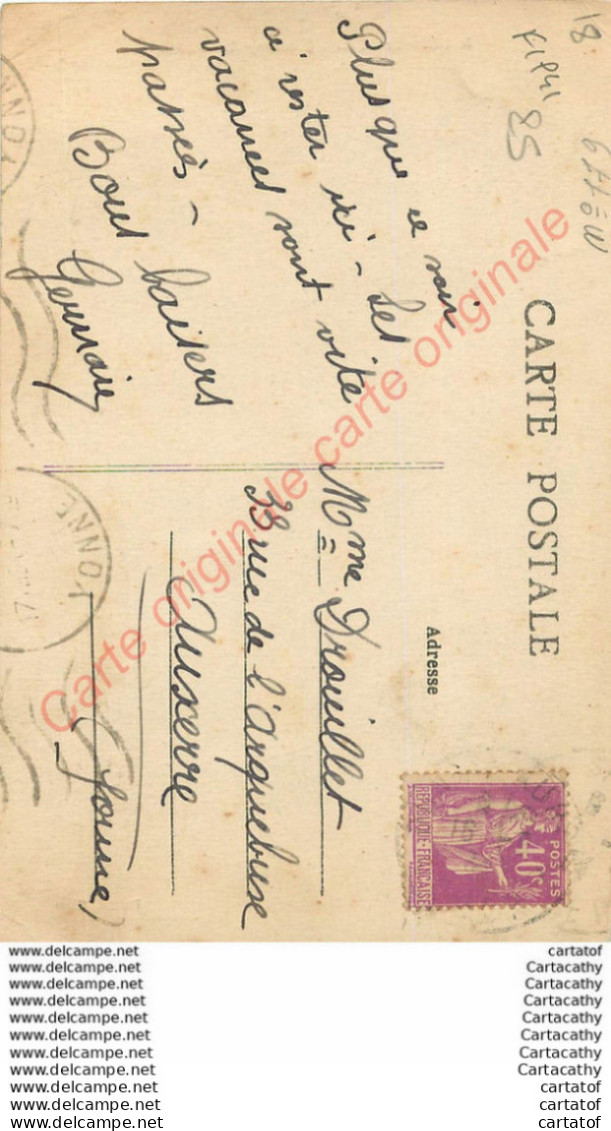 CARTE POSTALE
18
85
Plus que ce soir
à rester ici - Les
vacances sont vite
passées -
Bons baisers
Germain
Adresse
Mme Drouillet
rue de l'Arquebuse
Auxerre
(Yonne)
POSTES
40c
REPUBLIQUE-FRANÇAISE
YONNE
Carte originale carte originale
www.delcampe.net cartatof
www.delcampe.net Cartacathy
www.delcampe.net Cartacathy
www.delcampe.net Cartacathy
www.delcampe.net Cartacathy
www.delcampe.net Cartacathy
www.delcampe.net Cartacathy
www.delcampe.net Cartacathy
www.delcampe.net cartatof
www.delcampe.net cartatof
www.delcampe.net cartatof